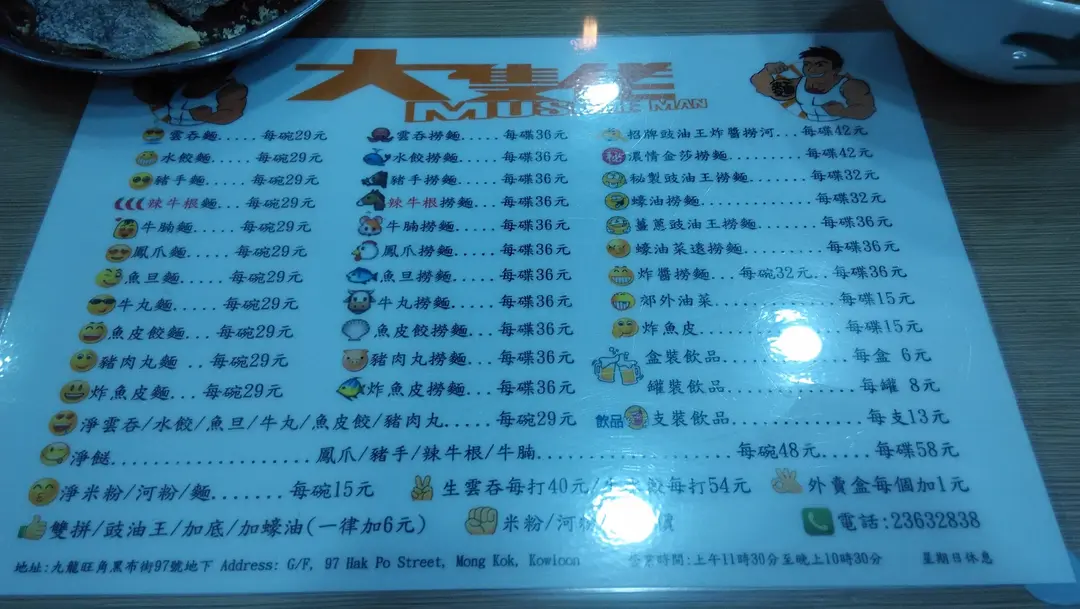 大集佬
MUSCLE MAN
雲吞麵.....每碗29元
水餃麵.....每碗29元
豬手麵.....每碗29元
辣牛根麵...每碗29元
牛腩麵.....每碗29元
鳳爪麵.....每碗29元
魚旦麵.....每碗29元
牛丸麵.....每碗29元
魚皮餃麵...每碗29元
豬肉丸麵 ..每碗29元
炸魚皮麵...每碗29元
雲吞撈麵.....每碟36元
水餃撈麵.....每碟36元
豬手撈麵.....每碟36元
辣牛根撈麵...每碟36元
牛腩撈麵.....每碟36元
鳳爪撈麵.....每碟36元
魚旦撈麵.....每碟36元
牛丸撈麵.....每碟36元
魚皮餃撈麵...每碟36元
豬肉丸撈麵...每碟36元
炸魚皮撈麵...每碟36元
招牌豉油王炸醬撈河...每碟42元
秘 濃情金莎撈麵.........每碟42元
秘製豉油王撈麵........每碟32元
蠔油撈麵............每碟32元
薑蔥豉油王撈麵.......每碟36元
蠔油菜遠撈麵.........每碟36元
炸醬撈麵...每碗32元..每碟36元
郊外油菜.............每碟15元
炸魚皮...............每碟15元
盒裝飲品.............每盒 6元
罐裝飲品.............每罐 8元
飲品 支裝飲品.............每支13元
淨雲吞/水餃/魚旦/牛丸/魚皮餃/豬肉丸.....每碗29元
淨餸....................鳳爪/豬手/辣牛根/牛腩....................每碗48元.....每碟58元
淨米粉/河粉/麵.......每碗15元
生雲吞每打40元/生水餃每打54元
外賣盒每個加1元
雙拼/豉油王/加底/加蠔油(一律加6元)
米粉/河粉
電話:23632838
地址:九龍旺角黑布街97號地下 Address: G/F, 97 Hak Po Street, Mong Kok, Kowloon
營業時間:上午11時30分至晚上10時30分
星期日休息